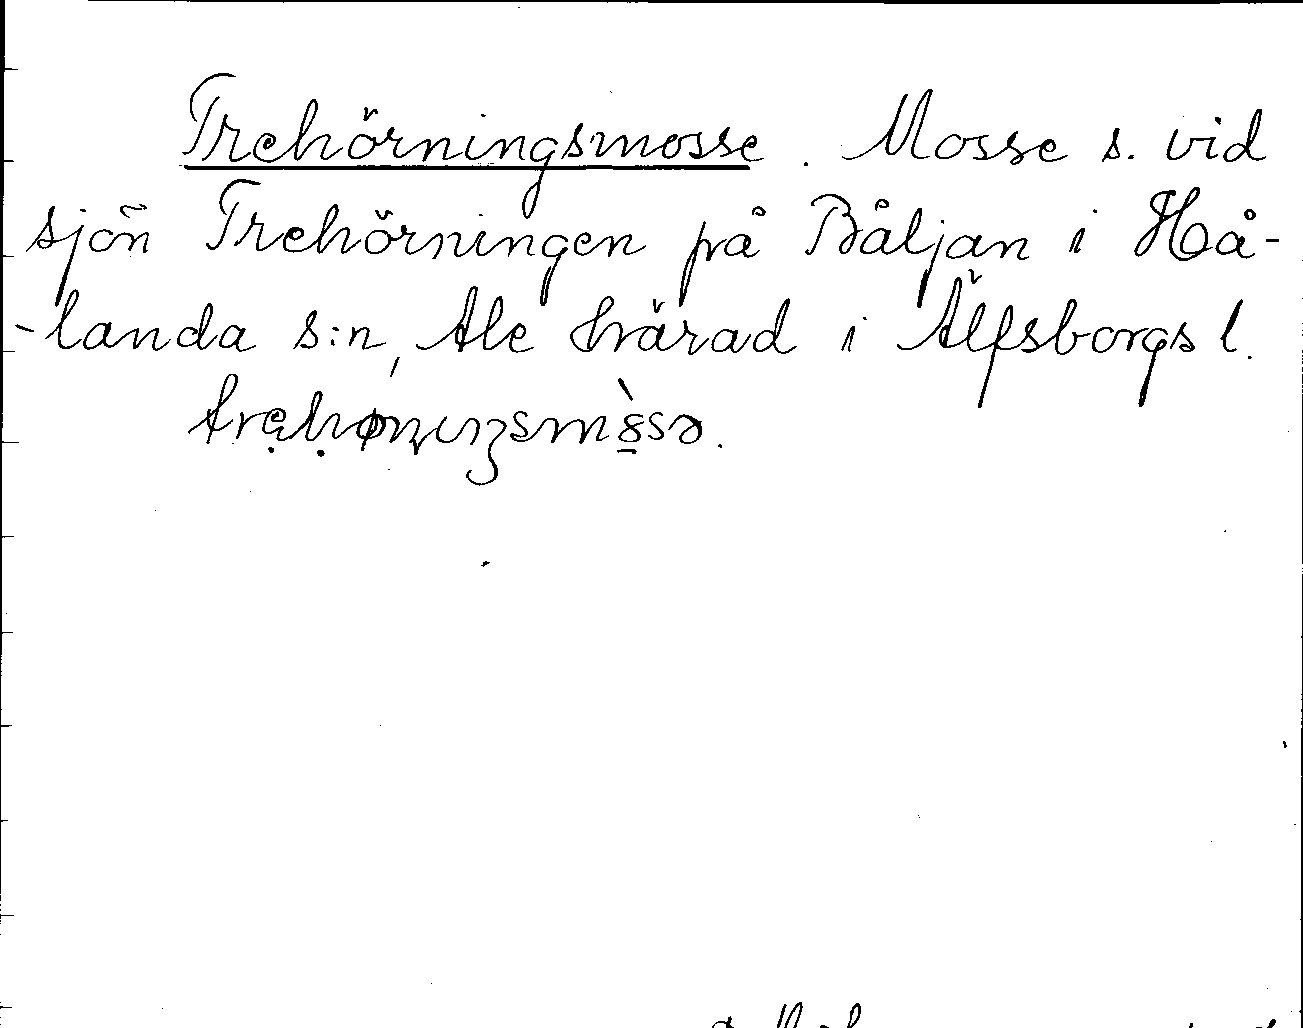 Trehörningsmosse. Mosse s. vid
sjön Trehörningen på Båljan i Hå-
-landa s:n, Ale härad i Älfsborgs l.